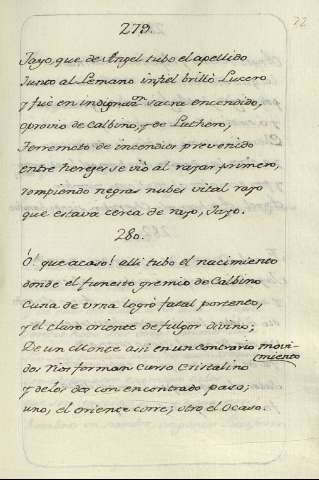 279.
22
Jayo, que de Angel tubo el apellido
Junto al Lemano infiel brilló Lucero
y fué en insignia sacra encendido,
oprovio de Calbino, y de Luthero;
Terremoto de incendios prevenido
entre hereges se vió al rayar primero,
rompiendo negras nubes vital rayo
que estava cerca de rayo, Jayo.
280.
Ó! que acaso! alli tubo el nacimiento
donde el funesto gremio de Calbino
Cuna de Vrna logró fatal portento,
y el claro oriente de fulgor divino;
De un Monte assi en un contrario movi-
miento
dos Rios forman Curso Cristalino
y delos dos con encontrado paso;
uno, el oriente corre; otro el Ocaso.